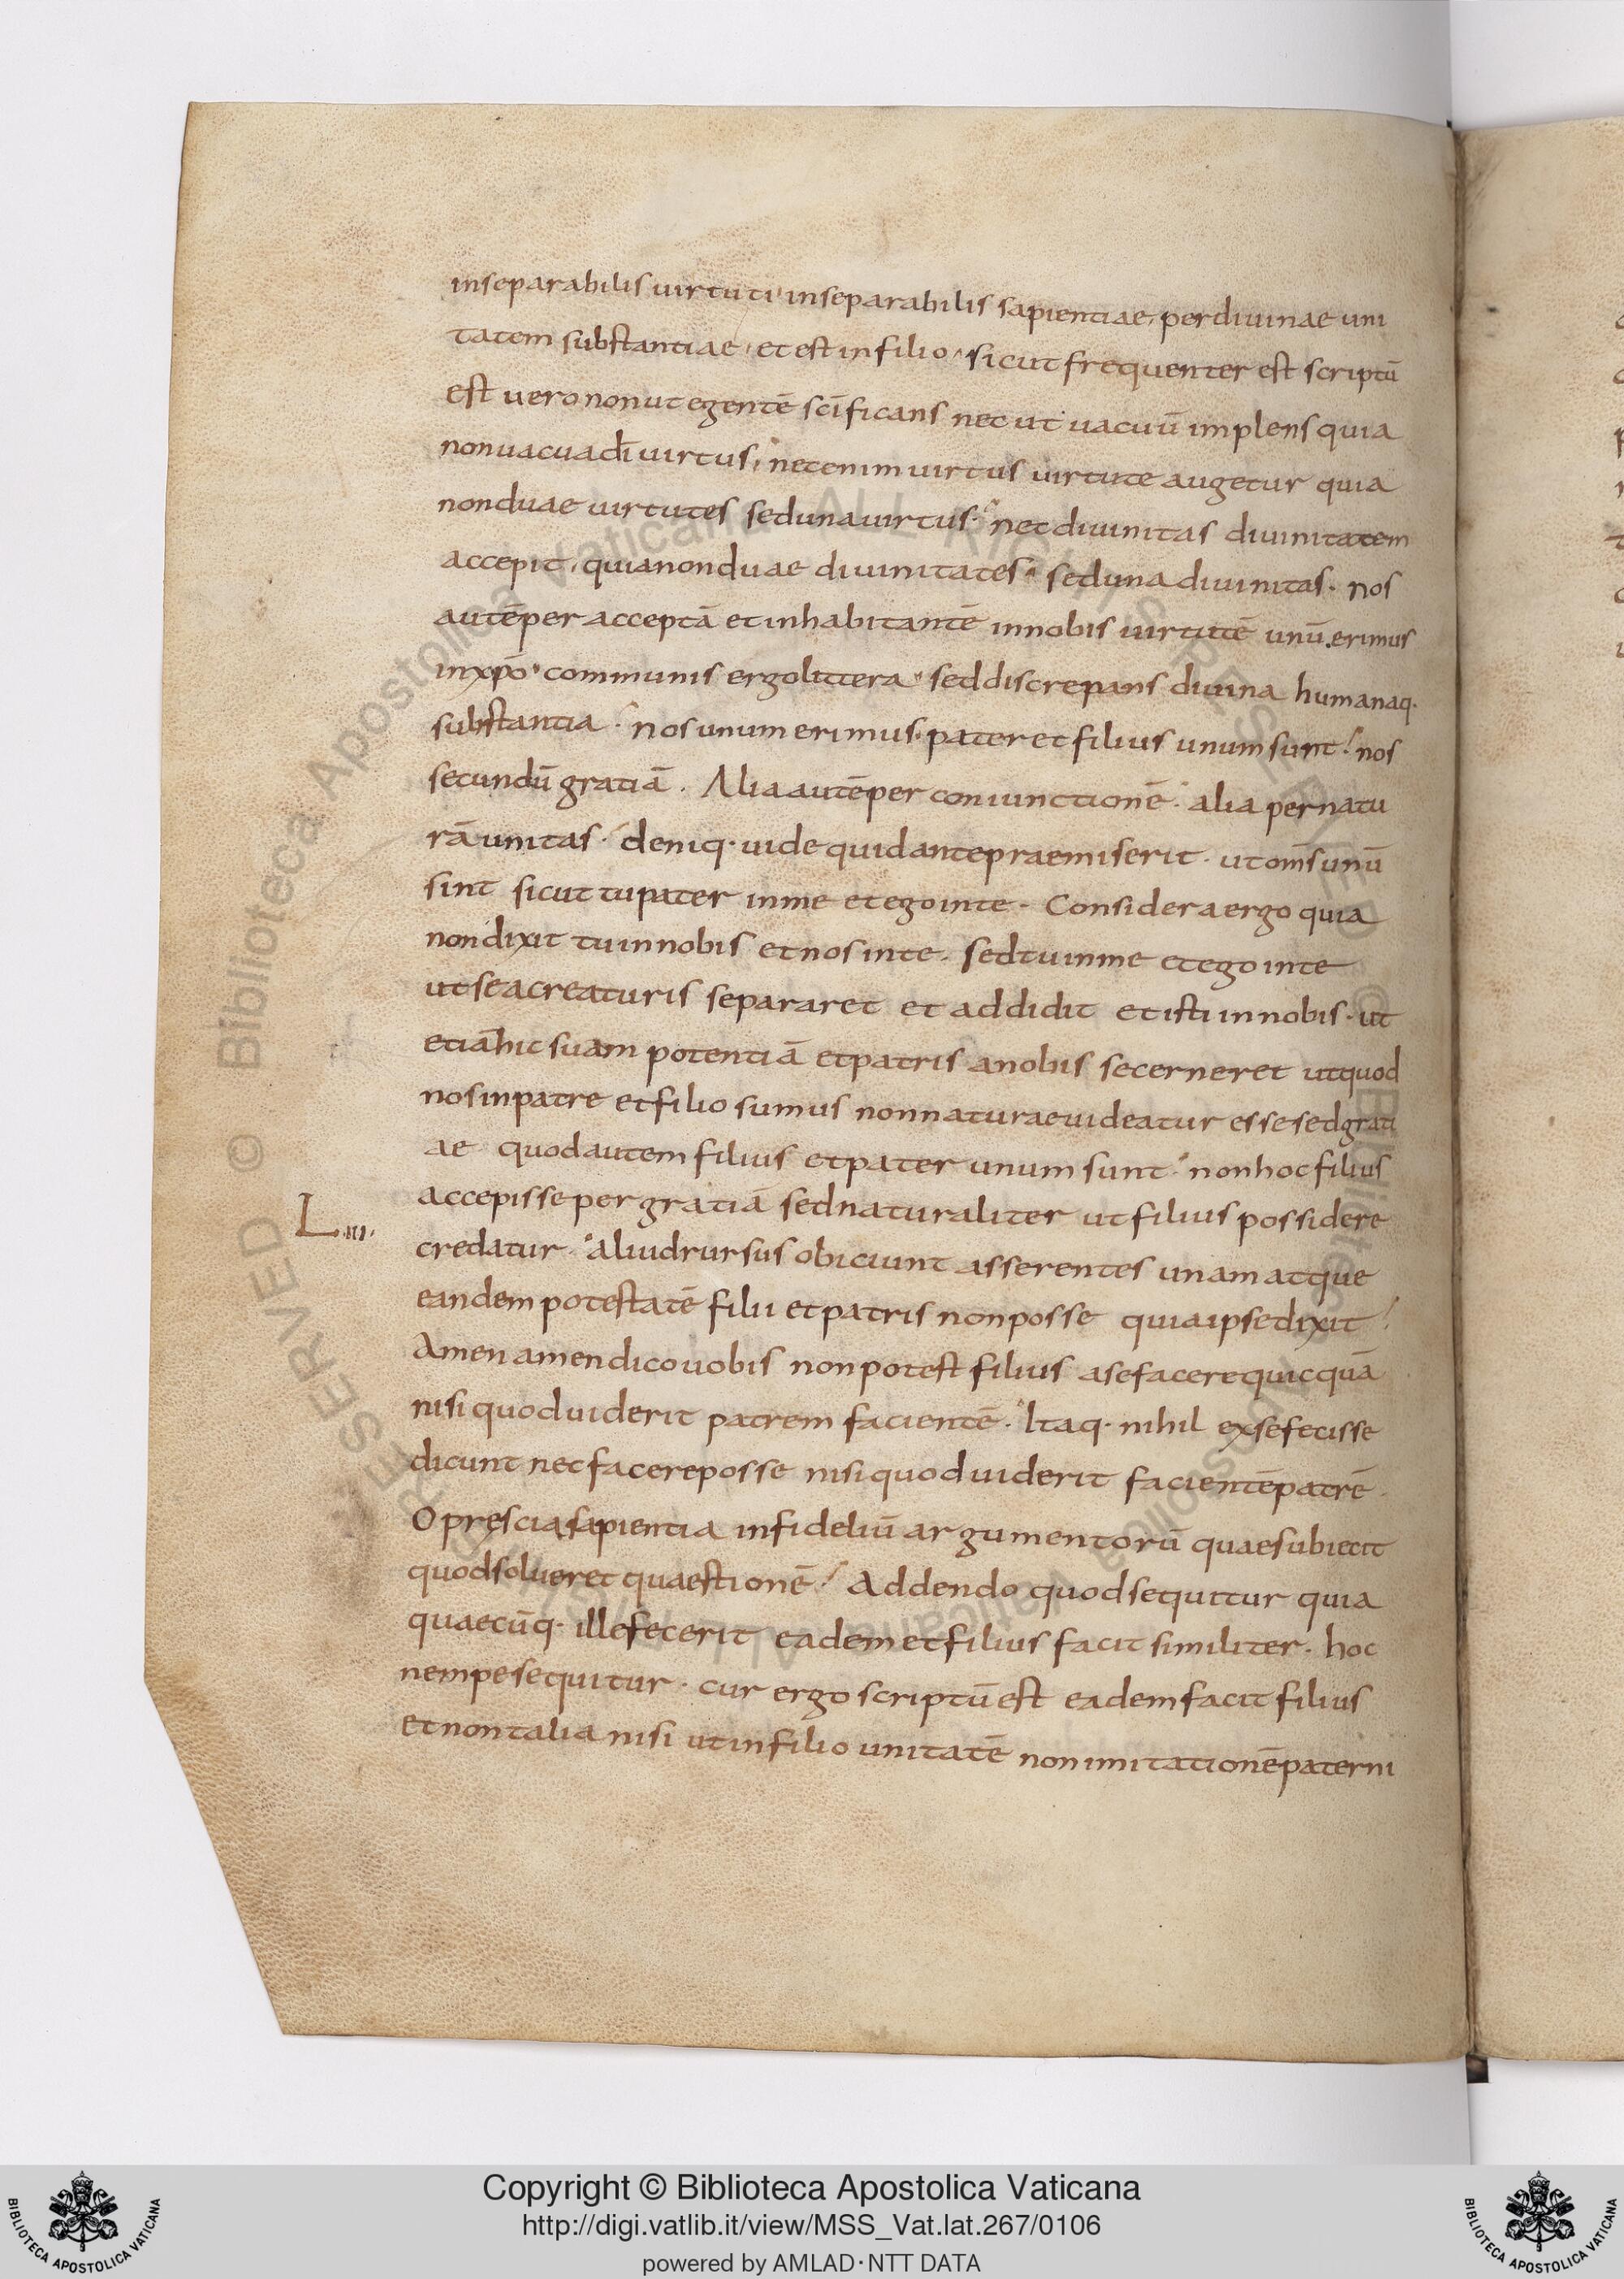 inseparabilis uirtuti inseparabilis sapientiae, per diuinae uni
tatem substantiae, et est in filio, sicut frequenter est scriptū
est uero non ut egentē sc̄ificans nec ut uacuū implens quia
non uacua dī uirtus, nec enim uirtus uirtute augetur quia
non duae uirtutes sed una uirtus. nec diuinitas diuinitatem
accepit, quia non duae diuinitates sed una diuinitas. nos
autē per acceptā et inhabitantē in nobis uirtutē unū erimus
in xp̄o communis ergo littera sed discrepans diuina humanaq·
substantia. nos unum erimus. pater et filius unum sunt. nos
secundū gratiā. Alia autē per coniunctionē. alia per natu
rā unitas. deniq· uide quid ante praemiserit. ut om̄s unū
sint sicut tu pater in me et ego in te. Considera ergo quia
non dixit tu in nobis et nos in te. sed tu in me et ego in te
ut se a creaturis separaret et addidit et isti in nobis. ut
etiā hic suam potentiā et patris a nobis secerneret ut quod
nos in patre et filio sumus non naturae uideatur esse sed grati
ae quod autem filius et pater unum sunt. non hoc filius
accepisse per gratiā sed naturaliter ut filius possidere
L.III.
credatur. aliud rursus obiciunt asserentes unam atque
eandem potestatē filii et patris non posse quia ipse dixit
Amen amen dico uobis non potest filius a se facere quicquā
nisi quod uiderit patrem facientē. Itaq· nihil ex se fecisse
dicunt nec facere posse nisi quod uiderit facientē patrē.
O pręscia sapientia infideliū argumentorū quae subiecit
quod solueret quaestionē. Addendo quod sequitur quia
quaecūq· ille fecerit eadem et filius facit similiter. hoc
nempe sequitur. cur ergo scriptū est eadem facit filius
et non talia nisi ut in filio unitatē non imitationē paterni
Copyright © Biblioteca Apostolica Vaticana
http://digi.vatlib.it/view/MSS_Vat.lat.267/0106
powered by AMLAD·NTT DATA
BIBLIOTECA APOSTOLICA VATICANA
BIBLIOTECA APOSTOLICA VATICANA